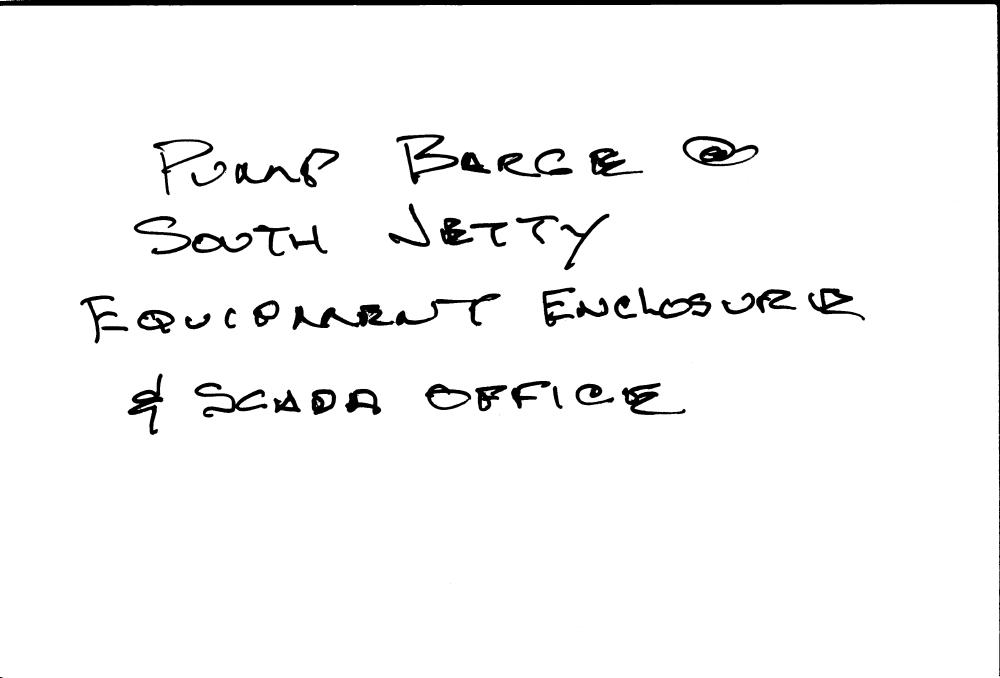 PUMP BARGE @
SOUTH JETTY
EQUIPMENT ENCLOSURE
& SCADA OFFICE